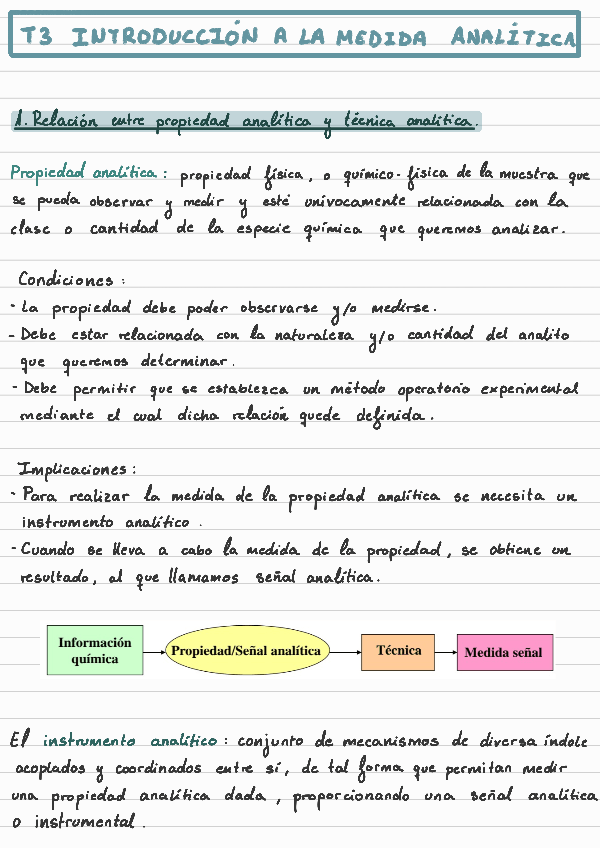 T3 INTRODUCCIÓN A LA MEDIDA ANALÍTICA
1. Relación entre propiedad analítica y técnica analítica.
Propiedad analítica: propiedad física, o químico-física de la muestra que
se pueda observar y medir y esté univocamente relacionada con la
clase o cantidad de la especie química que queremos analizar.
Condiciones:
- La propiedad debe poder observarse y/o medirse.
- Debe estar relacionada con la naturaleza y/o cantidad del analito
que queremos determinar.
- Debe permitir que se establezca un método operatorio experimental
mediante el cual dicha relación quede definida.
Implicaciones:
- Para realizar la medida de la propiedad analítica se necesita un
instrumento analítico.
- Cuando se lleva a cabo la medida de la propiedad, se obtiene un
resultado, al que llamamos señal analítica.
Información
química
Propiedad/Señal analítica
Técnica
Medida señal
El instrumento analítico: conjunto de mecanismos de diversa índole
acoplados y coordinados entre sí, de tal forma que permitan medir
una propiedad analítica dada, proporcionando una señal analítica
o instrumental.